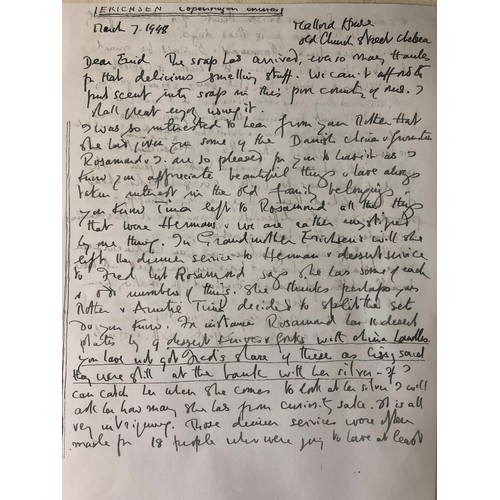 ERICHSEN Copenhagen China
March 7. 1948 Mallord House
Old Church Street Chelsea
Dear Enid The soap has arrived, ever so many thanks
for that delicious smelling stuff. We can't afford to
put scent into soaps in this poor country of ours. I
shall great enjoy using it.
I was so interested to hear from your Mother that
she has given you some of the Danish china &
Rosamond & I are so pleased for you to have it as I
know you appreciate beautiful things & have always
taken interest in the old family belongings.
you know Tina left to Rosamond all the things
that were Hermans & we are rather mystified
by one thing. In Grandmother Erichsen's will she
left the dinner service to Herman & dessert service
to Fred but Rosamond says she has some of each
& odd numbers of things. She thinks perhaps your
Mother & Auntie Tina decided to split the set
Do you know. For instance Rosamond has 11 dessert
plates & 9 dessert knives & forks with china handles.
you have not got Fred's share of these as said
they were still at the bank with her silver - if I
can catch her when she comes to look at her silver I will
ask her how many she has from curiosity sake. It is all
very intriguing. Those dinner services were often
made for 18 people who were going to have at least